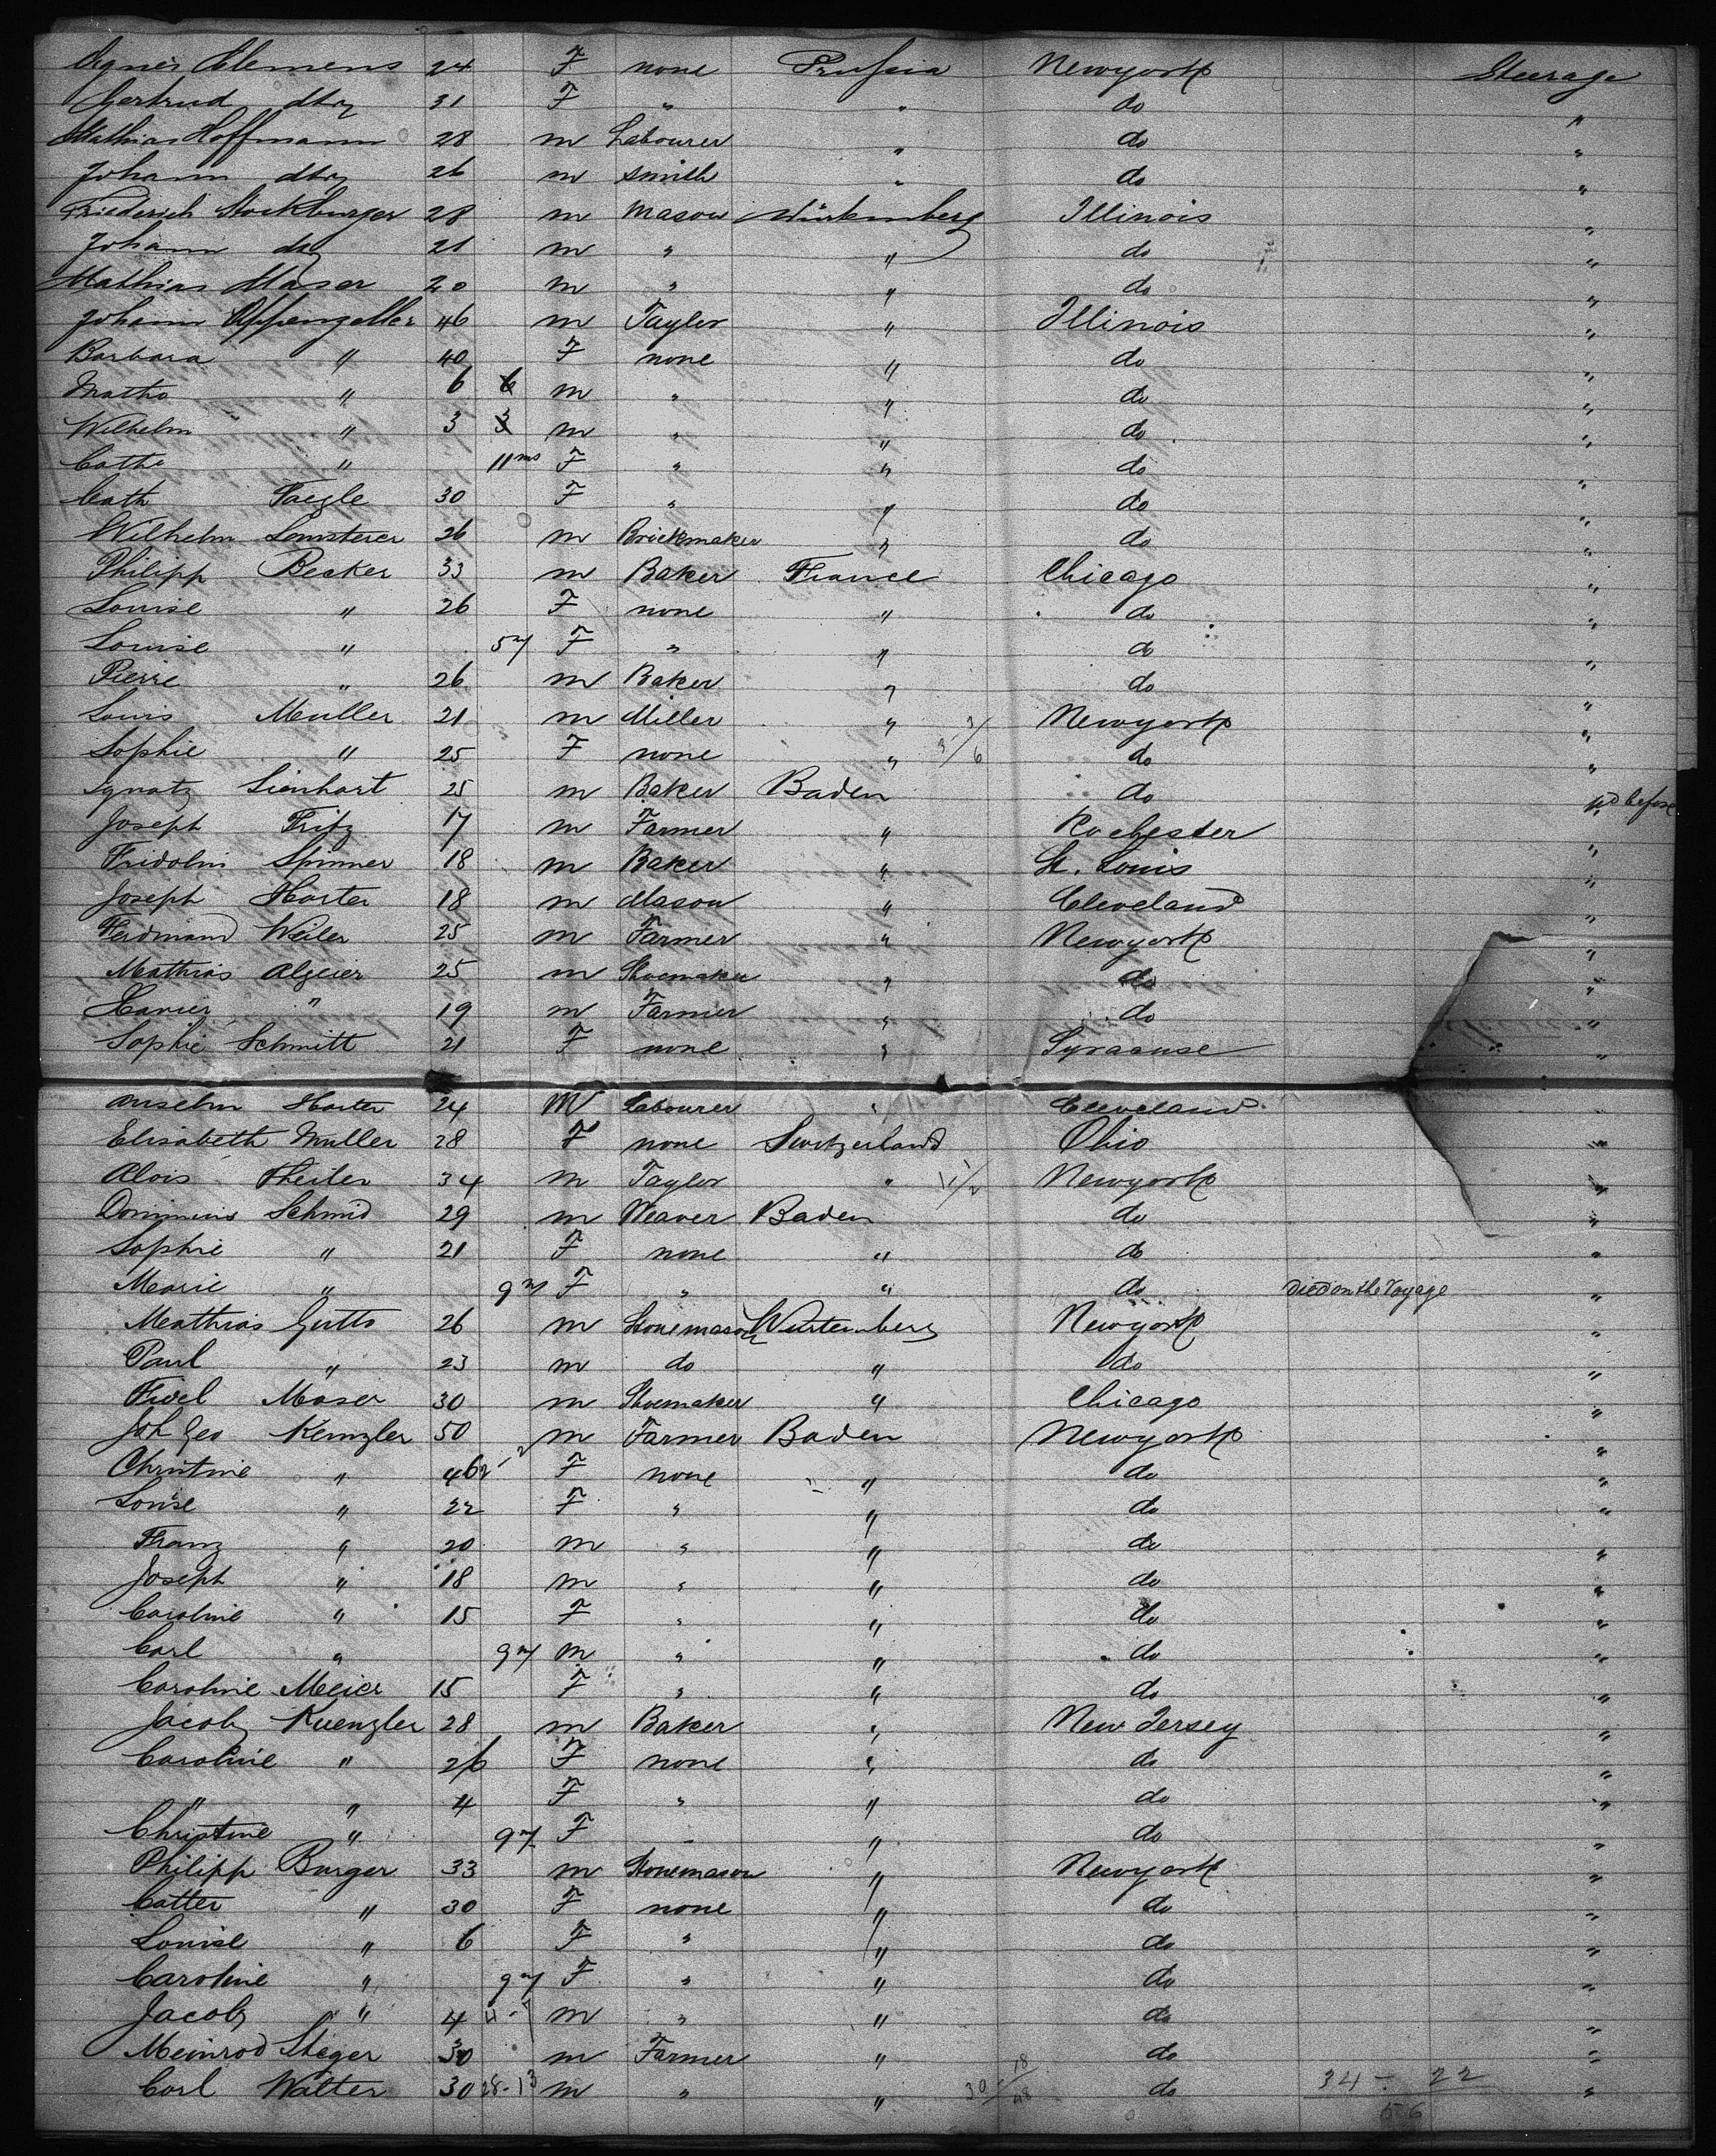 Agnes Clemens 24 F none Prussia Newyork Steerage
Gertrud dto 31 F " " do "
Mathias Hoffmann 28 m Labourer " do "
Johann dto 26 m smith " do "
Friederich Stockburger 28 m Mason Würtemberg Illinois "
Johann dto 21 m " " do "
Mathias Maser 20 m " " do "
Johann Appenzeller 46 m Taylor " Illinois "
Barbara " 40 F none " do "
Matha " 6 6 m " " do "
Wilhelm " 3 3 m " " do "
Catha " 11 ms F " " do "
Cath Faegle 30 F " " do "
Wilhelm 26 m Brickmaker " do "
Philipp Becker 33 m Baker France Chicago "
Louise " 26 F none " do "
Louise " 5 m F " " do "
Pierre " 26 m Baker " do "
Louis Muller 21 m Miller " Newyork "
Sophie " 25 F none " do "
Ignatz Lienhart 25 m Baker Baden do "
Joseph Fritz 17 m Farmer " Rochester "
Fridolin Spinner 18 m Baker " St. Louis "
Joseph Harter 18 m Mason " Cleveland "
Ferdinand Weiler 25 m Farmer " Newyork "
Mathias Algeier 25 m Shoemaker " do "
Xavier " 19 m Farmer " do "
Sophie Schmitt 21 F none " Syracuse "
Anselm Harter 24 M Labourer " Cleveland "
Elisabeth Muller 28 F none Switzerland Ohio "
Alois Theiler 34 m Taylor " Newyork "
Schmid 29 m Weaver Baden do "
Sophie " 21 F none " do "
Marie " 9 m F " " do Died on the Voyage "
Mathias Gutts 26 m Stonemason Wurtemberg Newyork "
Paul " 23 m do " do "
Fidel Moser 30 m Shoemaker " Chicago "
Joh Geo Kenzler 50 m Farmer Baden Newyork "
Christine " 46 F none " do "
Louise " 22 F " " do "
Franz " 20 m " " do "
Joseph " 18 m " " do "
Caroline " 15 F " " do "
Carl " 9 m m " " do "
Caroline Meier 15 F " " do "
Jacob Kuenzler 28 m Baker " New Jersey "
Caroline " 26 F none " do "
" " 4 F " " do "
Christine " 9 m F " " do "
Philipp Burger 33 m Stonemason " Newyork "
Catter " 30 F none " do "
Louise " 6 F " " do "
Caroline " 9 m F " " do "
Jacob " 4 m " " do "
Meinrod Steger 30 m Farmer " do "
Carl Walter 30 28-13 m " " 30 18/48 do 34 - 22 "
56